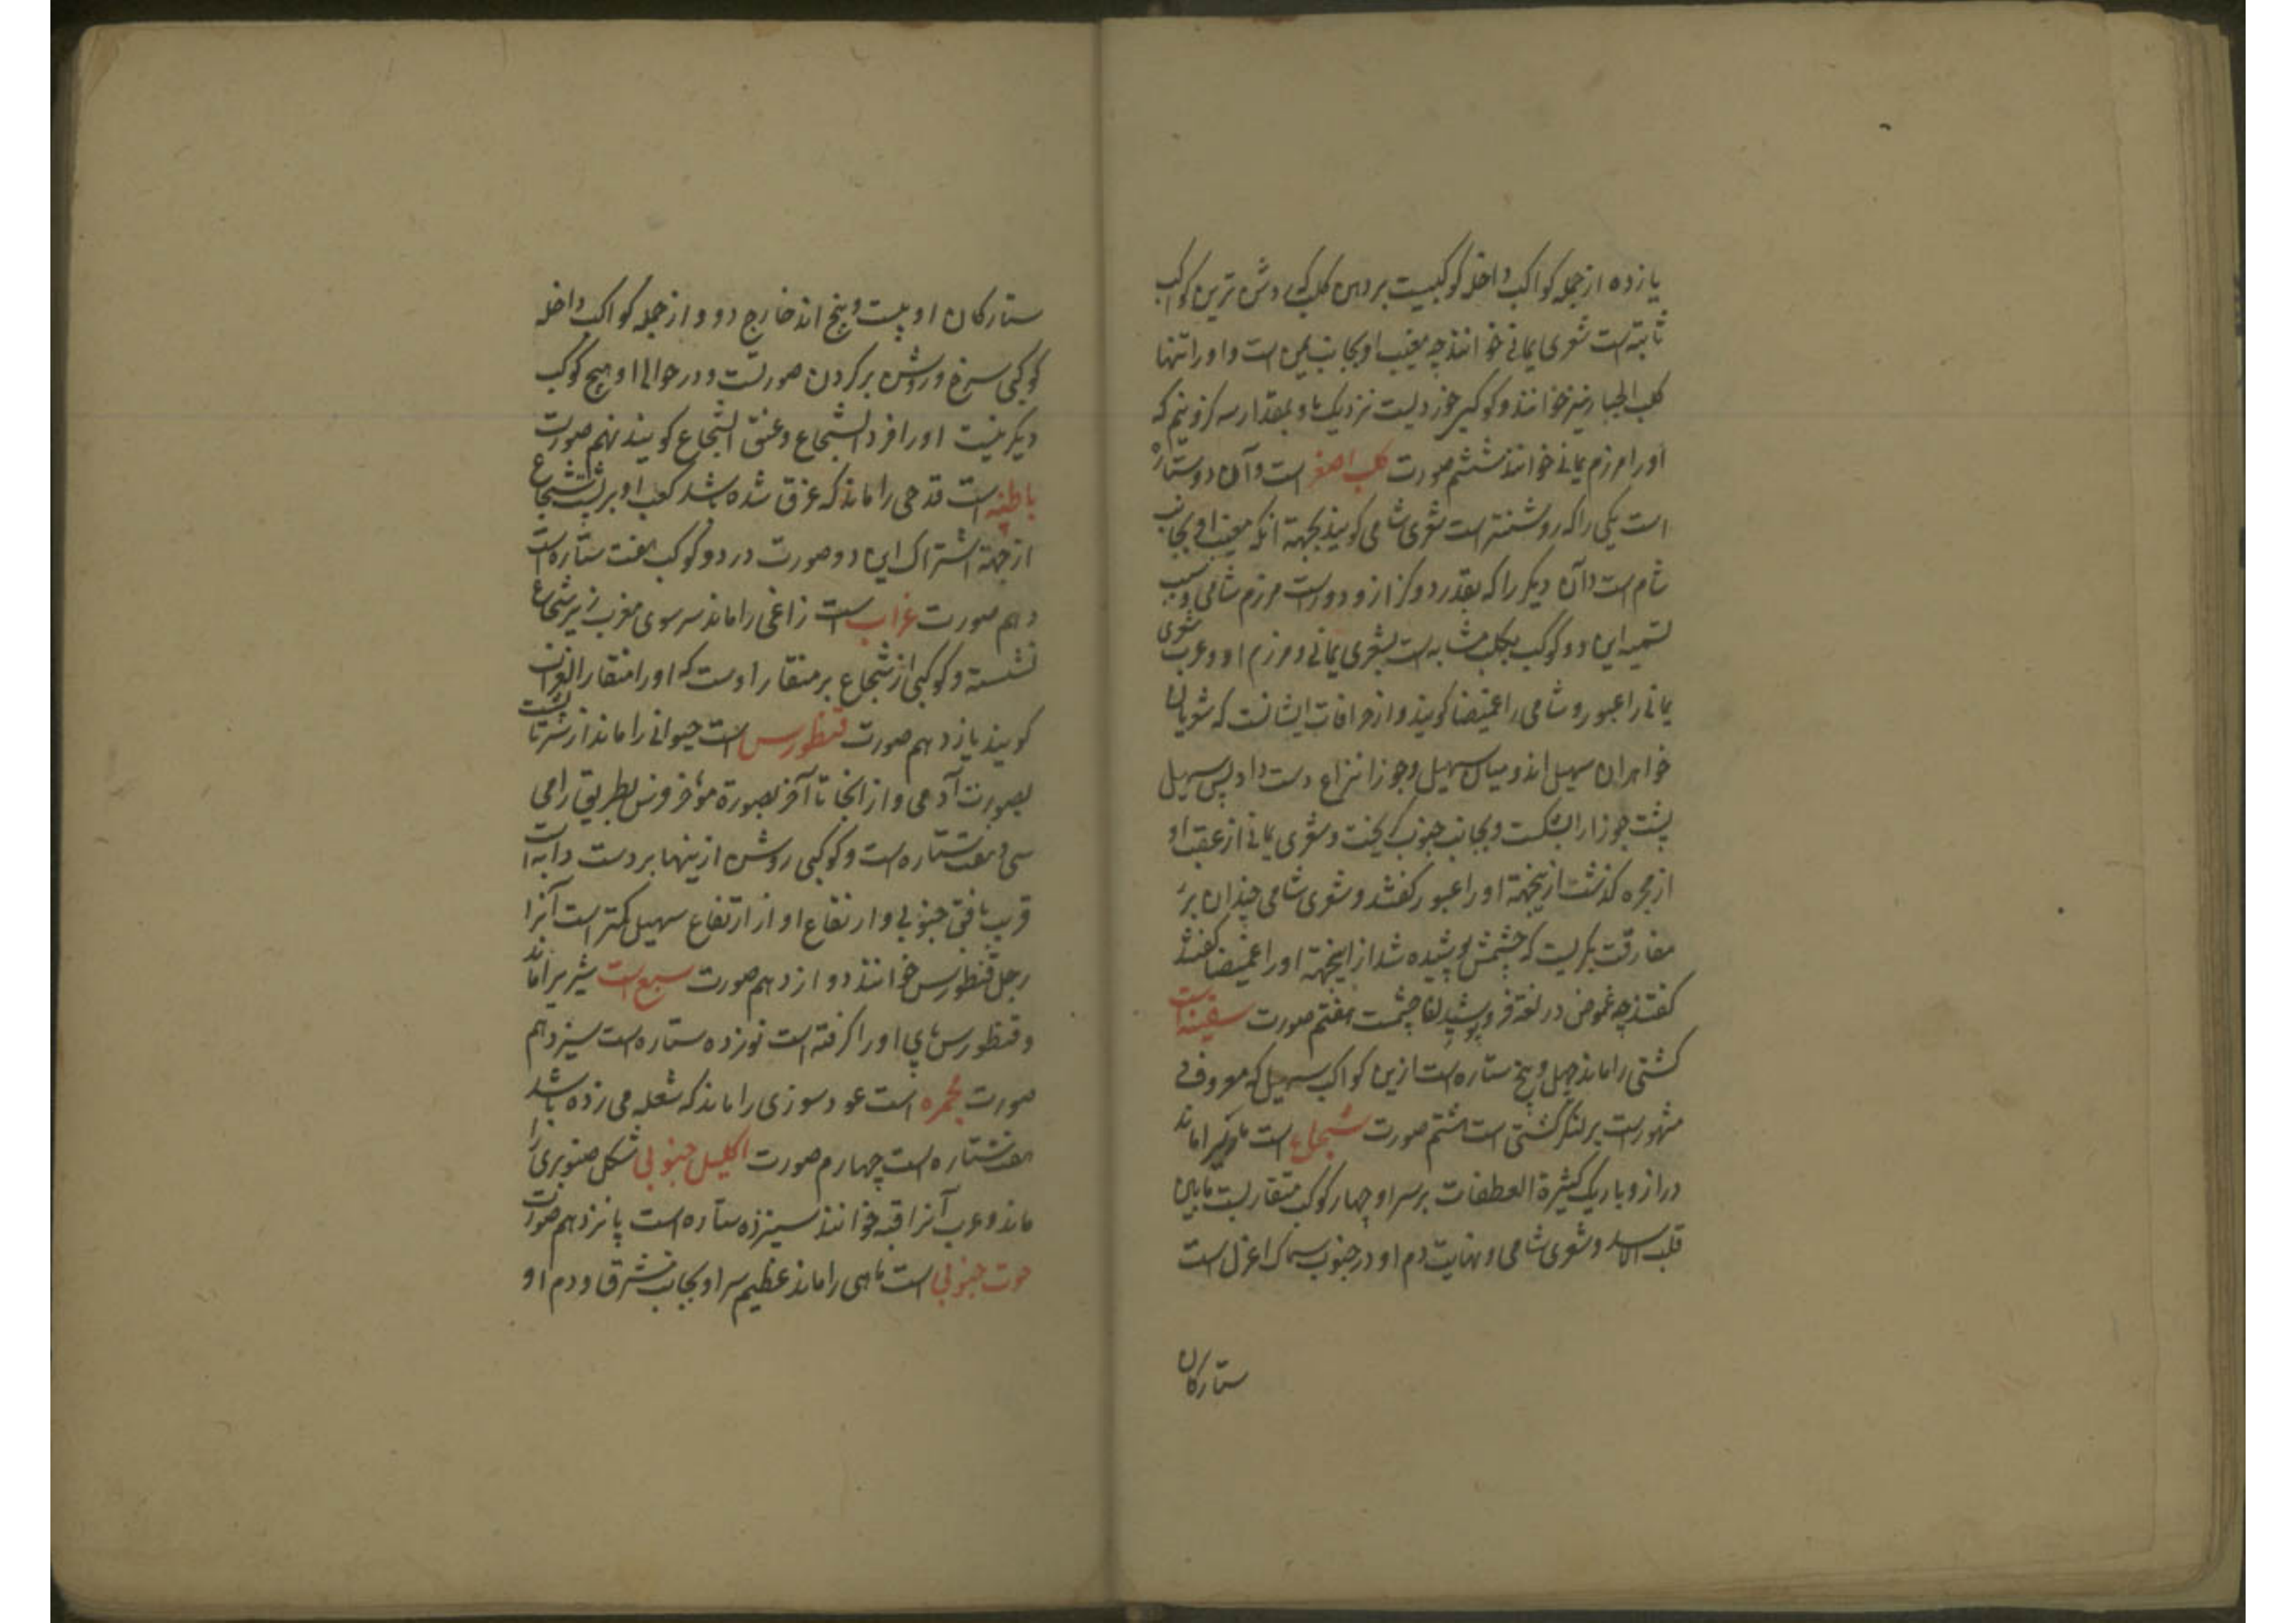 یازده از جمله کواکب داخله کوکبیست بر دهن کلب که روشن ترین کواکب
ثابته است شعری یمانی خوانند چه مغیب او بجانب یمن است و او را تنها
کلب الجبار نیز خوانند و کوکبی خوردیست نزدیک باو بمقدار سه کز و نیم که
او را مرزم یمانی خوانند ششم صورت کلب اصغر است و آن دو ستاره
است یکی را که روشنتر است شعری شامی کویند بجهة انکه مغیب او بجانب
شام است و آن دیکر را که بقدر دو کز ازو دور است مرزم شامی و سبب
تسمیه این دو کوکب بکلب مشابه است بشعری یمانی و مرزم او و عرب شعری
یمانی را عبور و شامی را غمیضا کویند و از خرافات ایشانست که شعریان
خواهران سهیل اند و میان سهیل و جوزا نزاع دست داد پس سهیل
پشت جوزا را بشکست و بجانب جنوب کریخت و شعری یمانی از عقب او
از مجره کذشت ازینجهة او را عبور کفتند و شعری شامی چندان بر
مفارقت بکریست که چشمش پوشیده شد از اینجهة او را غمیضا کفتند
کفتند چه غموض در لغة فرو پوشیدن چشمست هفتم صورت سفینه است
کشتی را ماند چهل و پنج ستاره است ازین کواکب سهیل که معروف و
مشهور است بر لنکر کشتی است هشتم صورت شجاع است ماری را ماند
دراز و باریک کثیرة العطفات بر سر او چهار کوکب متقاربست مابین
قلب الاسد و شعری شامی و نهایت دم او در جنوب سماک اعزل است
ستارکان
ستارکان او بیست و پنج اند خارج دو و از جمله کواکب داخله
کوکبی سرخ و روشن بر کردن صورتست و در حوالی او هیچ کوکب
دیکر نیست او را فرد الشجاع و عنق الشجاع کویند نهم صورت
باطیه است قدحی را ماند که غرق شده باشد کعب او بر پشت شجاع
از جهة اشتراک این دو صورت در دو کوکب هفت ستاره است
دهم صورت غراب است زاغی را ماند سر سوی مغرب زیر شجاع
نشسته و کوکبی از شجاع بر منقار اوست که او را منقار الغراب
کویند یازدهم صورت قنطورس است حیوانی را ماند از سر تا پشت
بصورت آدمی و از انجا تا آخر بصورة مؤخر فرس بطریق رامی
سی و هفت ستاره است و کوکبی روشن ازینها بر دست دابه است
قریب بافق جنوبی و ارتفاع او از ارتفاع سهیل کمتر است آنرا
رجل قنطورس خوانند دوازدهم صورت سبع است شیری را ماند
و قنطورس پای او را کرفته است نوزده ستاره است سیزدهم
صورت مجمره است عود سوزی را ماند که شعله می زده باشد
هفت ستاره است چهارم صورت اکلیل جنوبی شکل صنوبری را
ماند و عرب آنرا قبه خوانند سیزده ستاره است پانزدهم صورت
حوت جنوبی است ماهی را ماند عظیم سر او بجانب مشرق و دم او